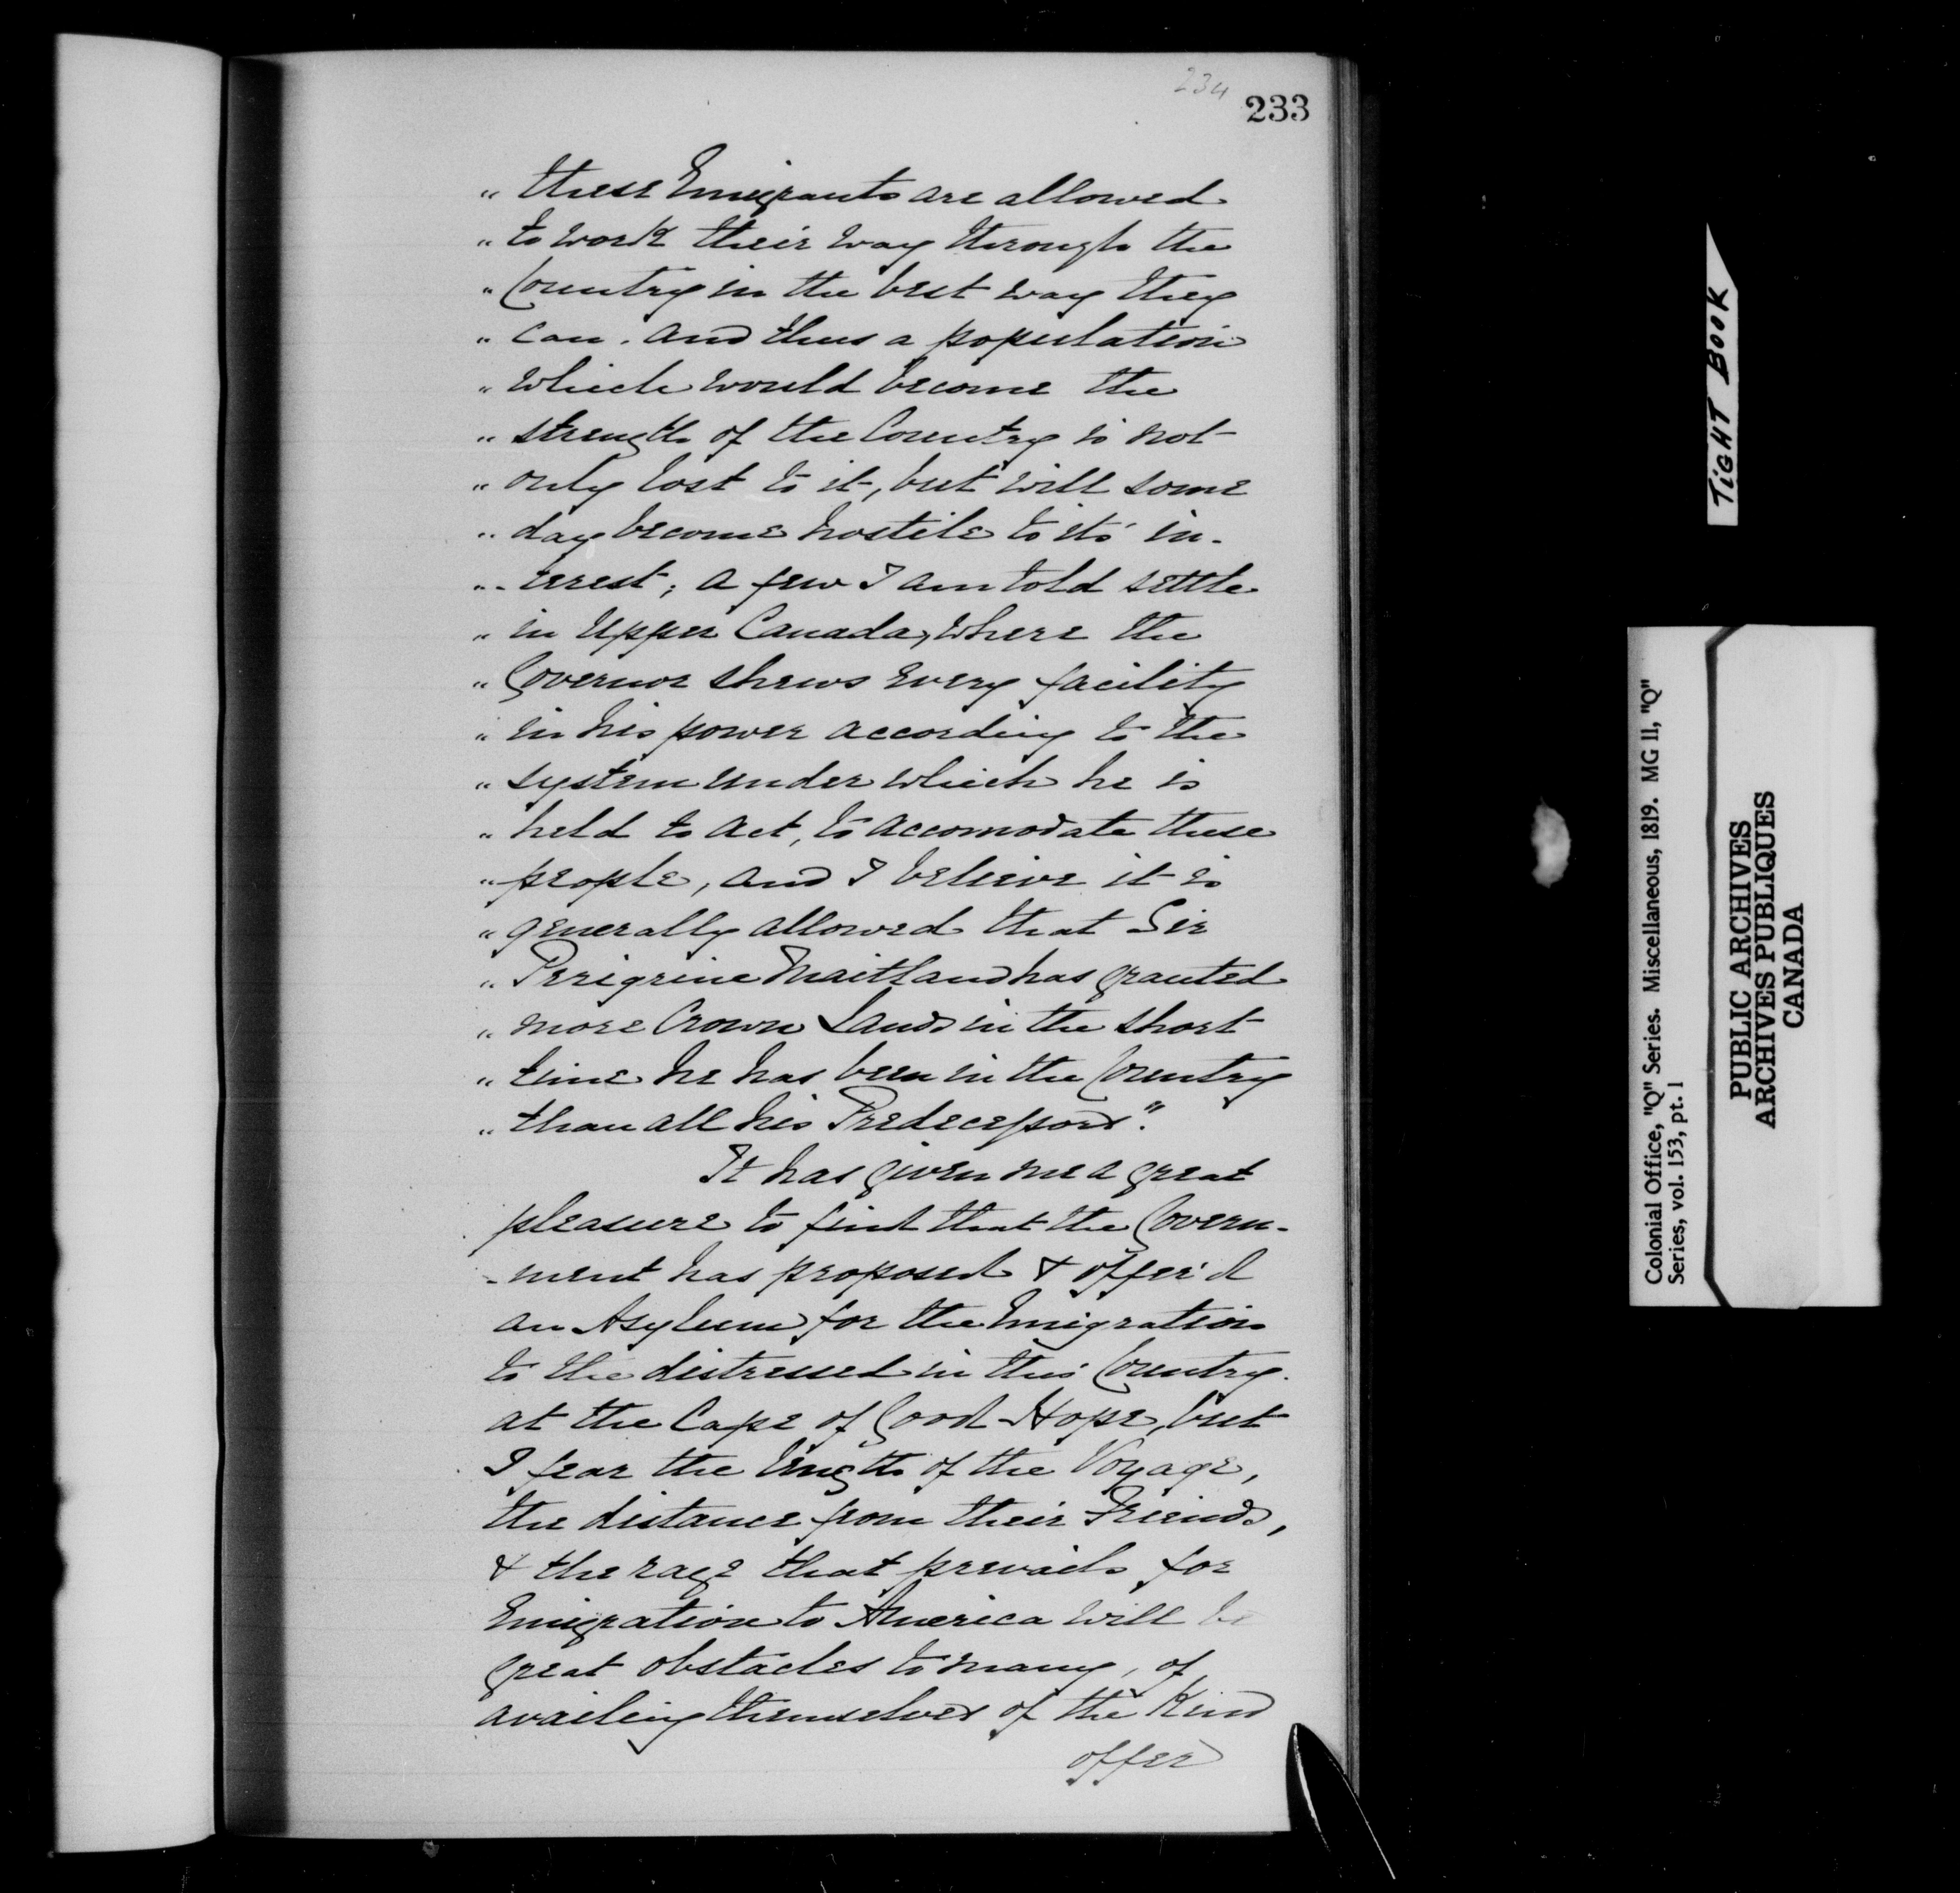 234
233
" these Emigrants are allowed
" to work their way through the
" Country in the best way they
" can. and thus a population
" which would become the
" strength of the Country is not
" only lost to it, but will some
" day become hostile to its' in-
" -terest; a few I am told settle
" in Upper Canada, where the
" Governor shews every facility
" in his power according to the
" system under which he is
" held to act, to accomodate these
" people, and I believe it is
" generally allowed that Sir
" Peregrine Maitland has granted
" more Crown Lands in the short
" time he has been in the Country
" than all his Predecessors".
It has given me a great
pleasure to find that the Govern-
-ment has proposed & offer'd
an Asylum for the Emigration
to the distressed in this Country.
at the Cape of Good Hope, but
I fear the length of the Voyage,
the distance from their Friends,
& the rage that prevails for
Emigration to America will be
great obstacles to many, of
availing themselves of the Kind
offer
TIGHT BOOK
Colonial Office, "Q" Series. Miscellaneous, 1819. MG 11, "Q"
Series, vol. 153, pt. 1
PUBLIC ARCHIVES
ARCHIVES PUBLIQUES
CANADA